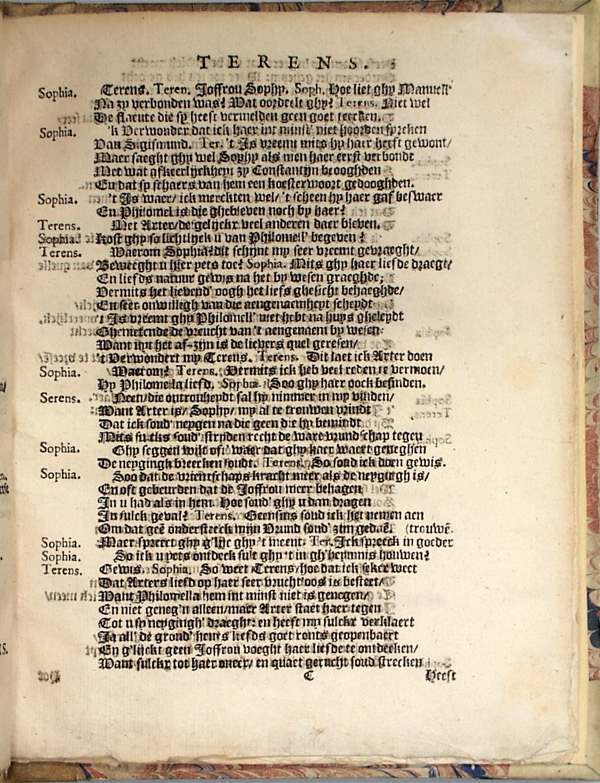 TERENS.
Sophia. Terens. Teren. Joffrou Sophy. Soph. Hoe liet ghy Manuel?
Na zy verbonden was? Wat oordeelt ghy? Terens. Niet wel
De flaeute die sy heeft vermelden geen goet teecken.
Sophia. 'k Verwonder dat ich haer int minst' niet hoorden spreken
Van Sigismund. Ter. 't Is vreemt mits hy haer heeft gewont/
Maer saeght ghy wel Sophy als men haer eerst verbondt
Met wat afkeerlyckheyt zy Constantyn beooghden
En dat sp schaers van hem een koesterwoort gedooghden.
Sophia. 't Is waer/ ick merckten wel/ 't scheen hy haer gaf beswaer
En Philomel is die ghebleven noch by haer?
Terens. Met Arter/ de gelyckr veel anderen daer bleven.
Sophia. Kost ghy so lichtlijck u van Philomell' begeven?
Terens. Waerom Sophia? dit schijnt my seer vreemt gevraeght/
Beweeght u hier yets toe? Sophia. Mits ghy haer liefde draegt/
En liefds natuur gewis na het by wesen graeghde;
Vermits het lievend' oogh het liefs gesicht behaeghde/
En seer onwilligh van die aengenaemheyt scheydt
't Is vreemt ghy Philomell' niet hebt na huys gheleydt
Ghenietende de vreucht van 't aengenaem by wesen
Want mits het af-zijn is de lievers quel geresen/
't Verwondert my Terens. Terens. Dit laet ick Arter doen
Sophia. Waerom? Terens. Vermits ick heb veel reden te vermoen/
Hy Philomela liefd. Sophia. Soo ghy haer oock besinden.
Serens. Neen/ die ontrouheydt sal hy nimmer in my vinden/
Want Arter is/ Sophy/ my al te trouwen vrindt
Dat ick soud' neygen na die geen die hy bemindt
Mits sulcks soud' strijden recht de ware vrundschap tegen
Sophia. Ghy seggen wilt oft' waer dat ghy haer waert geneghen
De neyging h breecken soudt. Terens. So soud ick doen gewis.
Sophia. Soo dat de vrientschaps kracht meer als de neygingh is/
En oft gebeurden dat de Joffrou meer behagen
In u had als in hem. Hoe soud' ghy u dan dragen
In sulck geval? Terens. Geensins soud ick het nemen aen
Om dat geē onderstreeck mijn Vrund soud' zijn gedaē. (trouwē.
Sophia. Maer spreeckt ghy g'lijc ghy't meent. Ter. Ick spreeck in goeder
Sophia. So ick u yets ontdeck sult ghy 't in gh'heymnis houwen?
Terens. Gewis. Sophia. So weet Terens/ hoe dat ick seker weet
Dat Arters liefd op haer seer vrucht'loos is besteet/
Want Philomella hem int minst niet is genegen/
En niet geneg'n alleen/ maer Arter staet haer tegen
Tot u sy neygingh' draeght; en heeft my sulckx verklaert
Ja all' de grond' heurs liefds goet ronts geopenbaert
En g'lijckt geen Joffrou voeght haer liefde te ontdecken/
Want sulckx tot haer oneer/ en quaet gerucht soud strecken
C Heeft